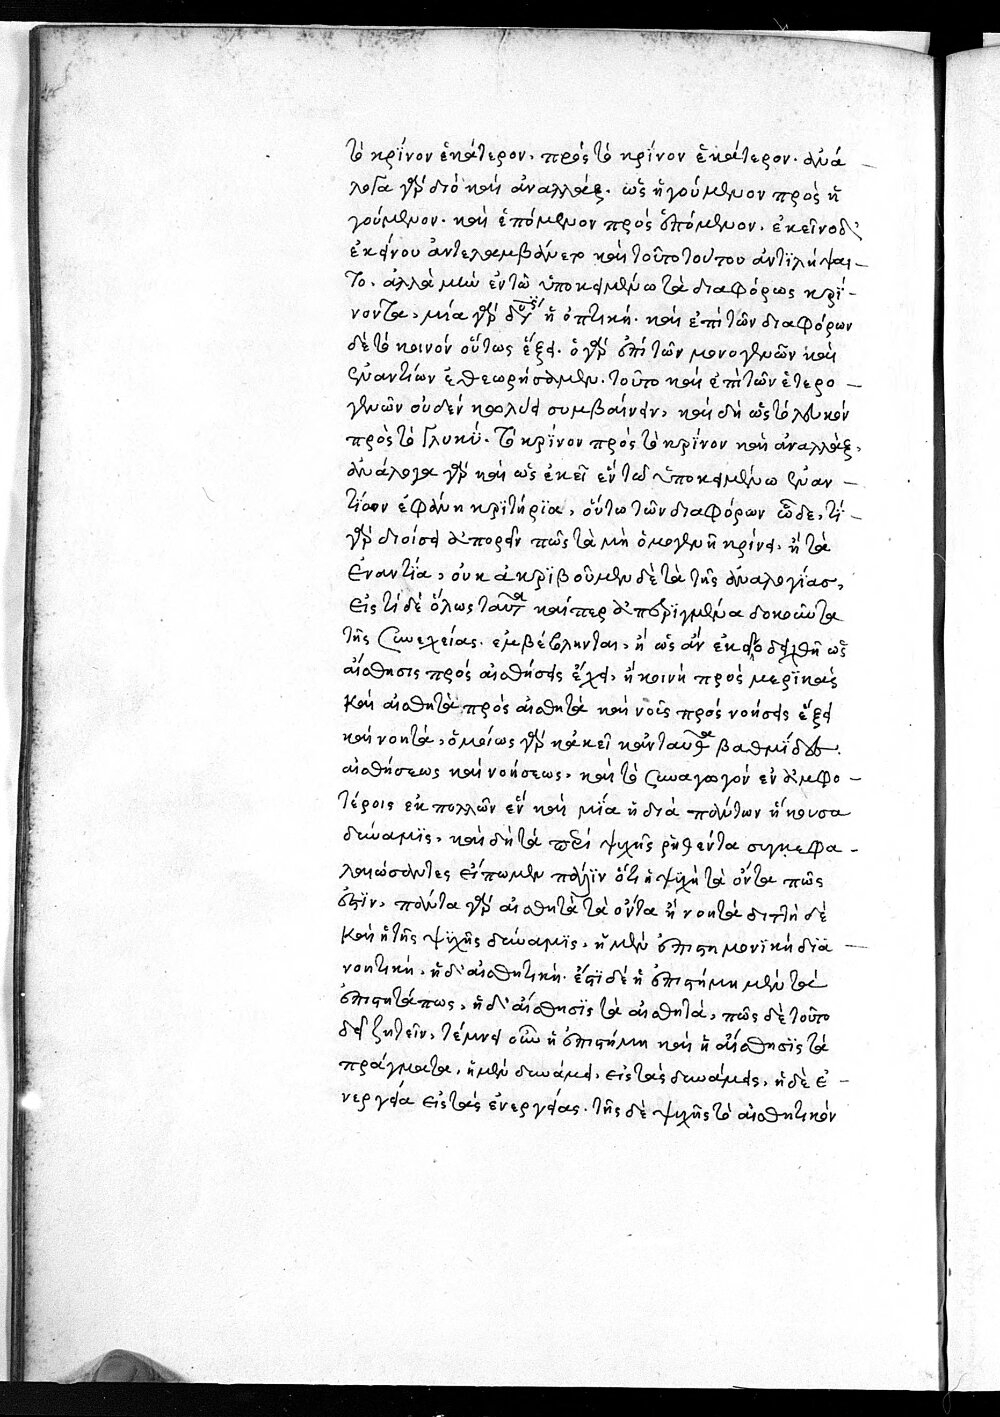 τὸ κρῖνον ἑκάτερον, πρὸς τὸ κρῖνον ἑκάτερον. ἀνά
λογα γὰρ διὸ καὶ ἀναλλάξ. ὡς ἡγούμενον πρὸς ἡ
γούμενον. καὶ ἑπόμενον πρὸς ἑπόμενον. ἐκεῖνο δ'
ἐκείνου ἀντελαμβάνετο καὶ τοῦτο τούτου ἀντιλήψαι
το. ἀλλὰ μὴν ἐν τῷ ὑποκειμένω τὰ διαφόρως κρί
νοντα, μία γὰρ ἡ ὀπτική. καὶ ἐπὶ τῶν διαφόρων
δὲ τὸ κοινὸν οὕτως ἕξει. ὃ γὰρ ἐπὶ τῶν μονογενῶν καὶ
ἐναντίων ἐθεωρήσαμεν. τοῦτο καὶ ἐπὶ τῶν ἑτερο
γενῶν οὐδὲν κωλύει συμβαίνειν, καὶ δὴ ὡς τὸ λευκὸν
πρὸς τὸ γλυκύ. τὸ κρῖνον πρὸς τὸ κρῖνον καὶ ἀναλλάξ,
ἀνάλογα γὰρ καὶ ὡς ἐκεῖ ἓν τῷ ὑποκειμένω ἐναν
τίων ἐφάνη κριτήρια, οὕτω τῶν διαφόρων ὧδε, τί
γὰρ διοίσει ἀπορεῖν πῶς τὰ μὴ ὁμογενῆ κρίνει, ἢ τὰ
ἐναντία, οὐκ ἀκριβοῦμεν δὲ τὰ τῆς ἀναλογίας,
εἰς τί δὲ ὅλως ταῦτα καίπερ δοκοῦντα
τῆς συνεχείας. ἐμβέβληνται, ἢ ὡς ἂν ἐκεῖνο δειχθῆ ὡς
αἴσθησις πρὸς αἰσθήσεις ἔχει, ἡ κοινὴ πρὸς μερικὰς
καὶ αἰσθητὰ πρὸς αἰσθητὰ καὶ νοῦς πρὸς νοήσεις ἕξει
καὶ νοητὰ, ὁμοίως γὰρ κἀκεῖ κἀνταῦθα βαθμίδες
αἰσθήσεως καὶ νοήσεως, καὶ τὸ συναγωγὸν ἐν ἀμφο
τέροις ἐκ πολλῶν ἓν καὶ μία ἡ διὰ πάντων ἥκουσα
δύναμις, καὶ δὴ τὰ περὶ ψυχῆς ῥηθέντα συγκεφα
λαιώσαντες εἴπωμεν πάλιν ὅτι ἡ ψυχὴ τὰ ὄντα πῶς
ἐστιν, πάντα γὰρ αἰσθητὰ τὰ ὄντα ἢ νοητὰ διττὴ δὲ
καὶ ἡ τῆς ψυχῆς δύναμις, ἡ μὲν ἐπιστημονικὴ δια
νοητική, ἡ δ' αἰσθητική. ἔστι δὲ ἡ ἐπιστήμη μὲν τὰ
ἐπιστητά πως, ἡ δ' αἴσθησις τὰ αἰσθητά, πῶς δὲ τοῦτο
δεῖ ζητεῖν, τέμνει οὖν ἡ ἐπιστήμη καὶ ἡ αἴσθησις τὰ
πράγματα, ἡ μὲν δυνάμει, εἰς τὰς δυνάμεις, ἡ δὲ ἐ
νεργεία εἰς τὰς ἐνεργείας. τῆς δὲ ψυχῆς τὸ αἰσθητικὸν